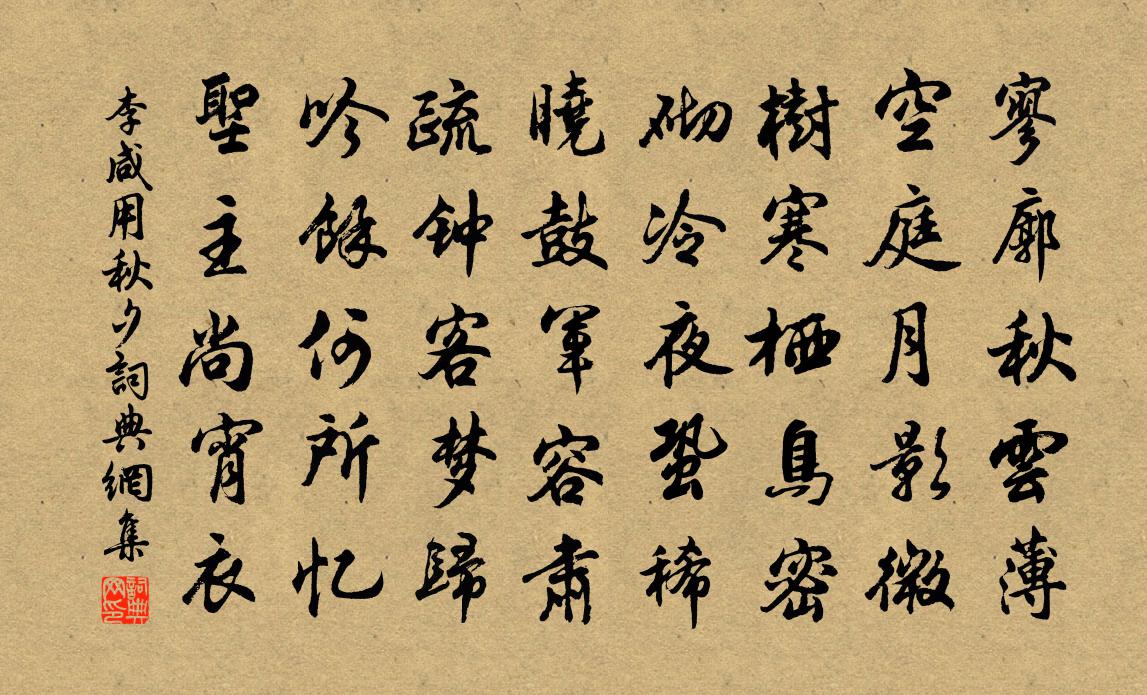 寥廓秋雲薄
空庭月影微
樹寒栖鳥密
砌冷夜蛩稀
曉鼓軍容肅
疏钟客梦歸
吟餘何所忆
聖主尚宵衣
李咸用秋夕詞典網集
詞典网印